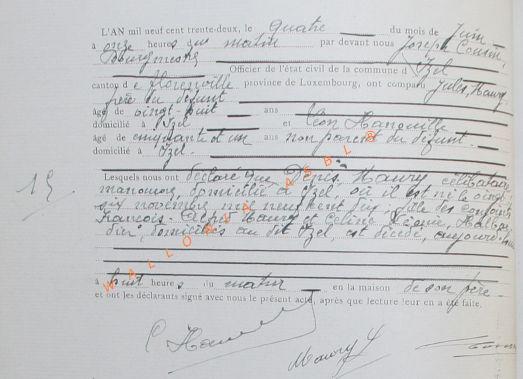 L'AN mil neuf cent trente-deux, le quatre du mois de Juin
à onze heures du matin par devant nous Joseph Cousin,
Bourgmestre Officier de l'état civil de la commune d'Izel
canton de Florenville, province de Luxembourg, ont comparu Jules, Maury,
frère du défunt
âgé de vingt huit ans
domicilié à Izel et Léon
âgé de cinquante et un ans non parent du défunt.
domicilié à Izel.
Lesquels nous ont déclaré que Denis, Maury, célibataire
manœuvre, domicilié à Izel, où il est né le vingt
six novembre mil neuf cent dix, fils des conjoints
François Maury et Céline
domiciliés au dit Izel, est décédé, aujourd'hui
15.
à huit heures du matin, en la maison de son père
et ont les déclarants signé avec nous le présent acte, après que lecture leur en a été faite.
Maury J
WALLONIA ASBL ®